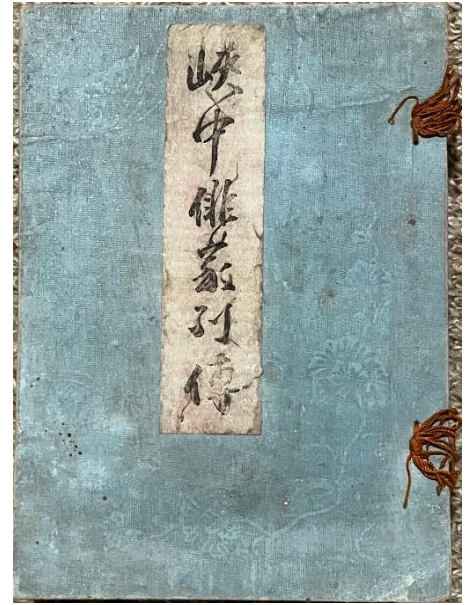 峽中俳家列傳